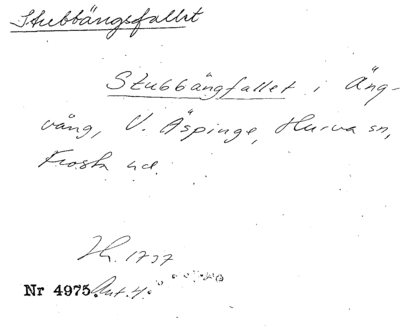 Stubbängsfallet
Stubbängfallet i Äng-
vång, V. Äspinge, Hurva sn,
Frosta hd.
Lh. 1737
Nr 4975. Akt. 4.